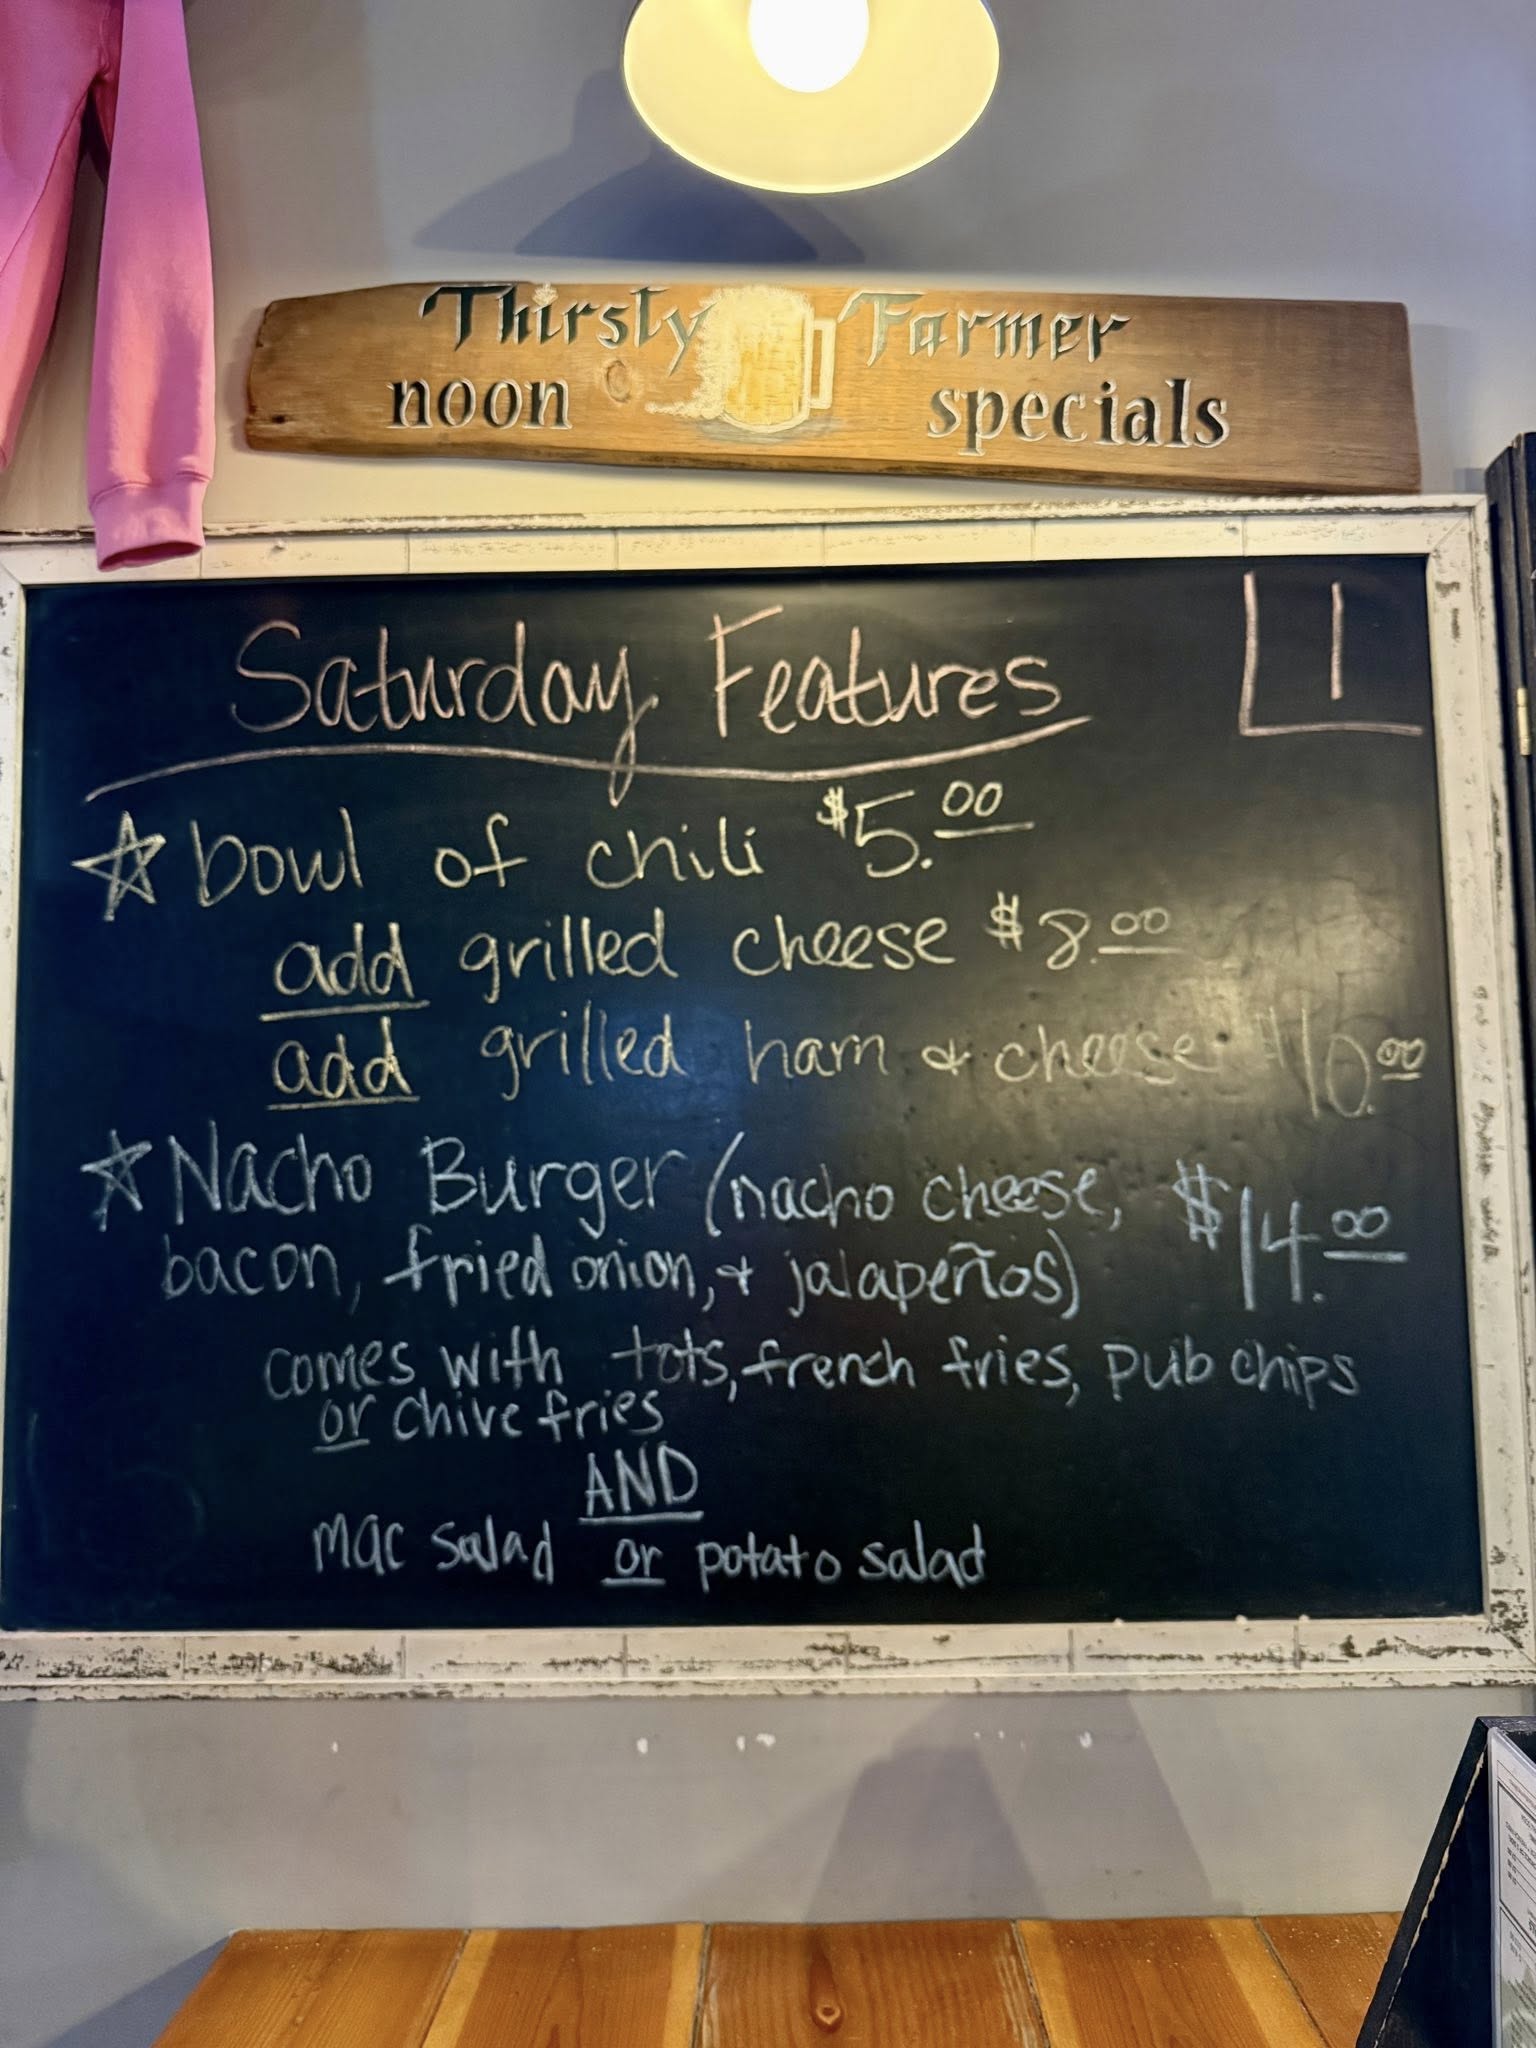 Thirsty Farmer
noon specials
Saturday Features
1
bowl of chili $5.00
add grilled cheese $8.00
add grilled ham & cheese $10.00
Nacho Burger (nacho cheese, $14.00
bacon, fried onion, & jalapeños)
comes with tots, french fries, pub chips
or chive fries
AND
mac salad or potato salad